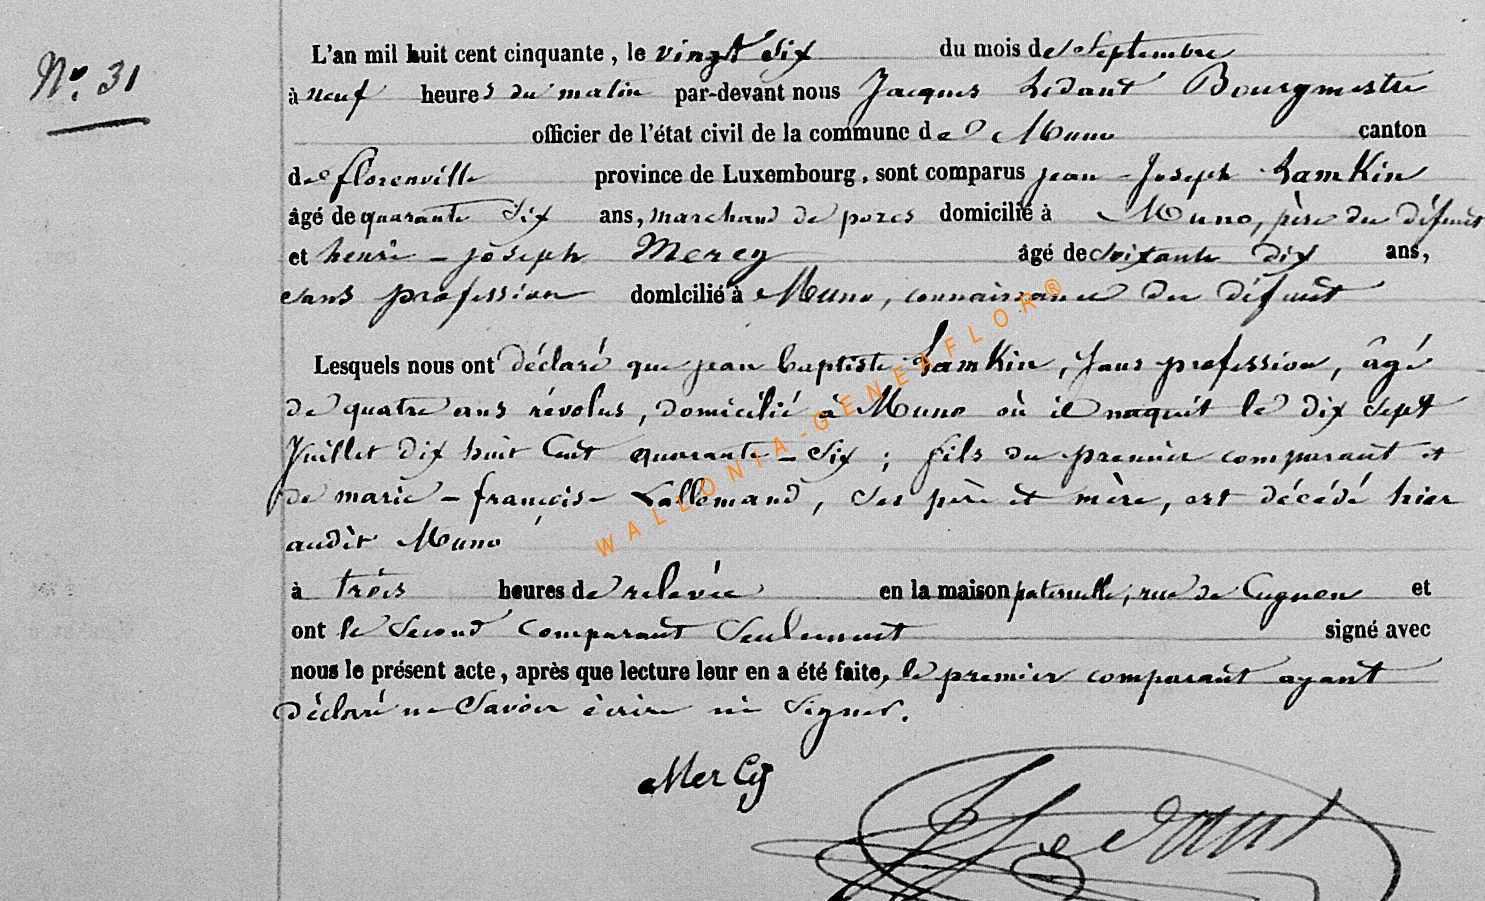 N° 31
L'an mil huit cent cinquante, le vingt six du mois de Septembre
à neuf heures du matin par-devant nous Jacques Lédant Bourgmestre
officier de l'état civil de la commune de Muno canton
de florenville province de Luxembourg, sont comparus jean - Joseph Lamkin
âgé de quarante Six ans, marchand de porcs domicilié à Muno, père du défunt
et henri - joseph Mercy âgé de soixante dix ans,
sans profession domicilié à Muno, connaissance du défunt
Lesquels nous ont déclaré que jean baptiste Lamkin, sans profession, âgé
de quatre ans révolus, domicilié à Muno où il naquit le dix sept
Juillet dix huit Cent quarante - Six ; fils du premier comparant et
de marie - françoise Lallemand, ses père et mère, est décédé hier
audit Muno
à trois heures de relevée en la maison paternelle, rue de Cugnon et
ont le second comparant seulement signé avec
nous le présent acte, après que lecture leur en a été faite, le premier comparant ayant
déclaré ne savoir écrire ni signer.
Mercy
J Ledant
WALLONIA-GENEAFLOR®